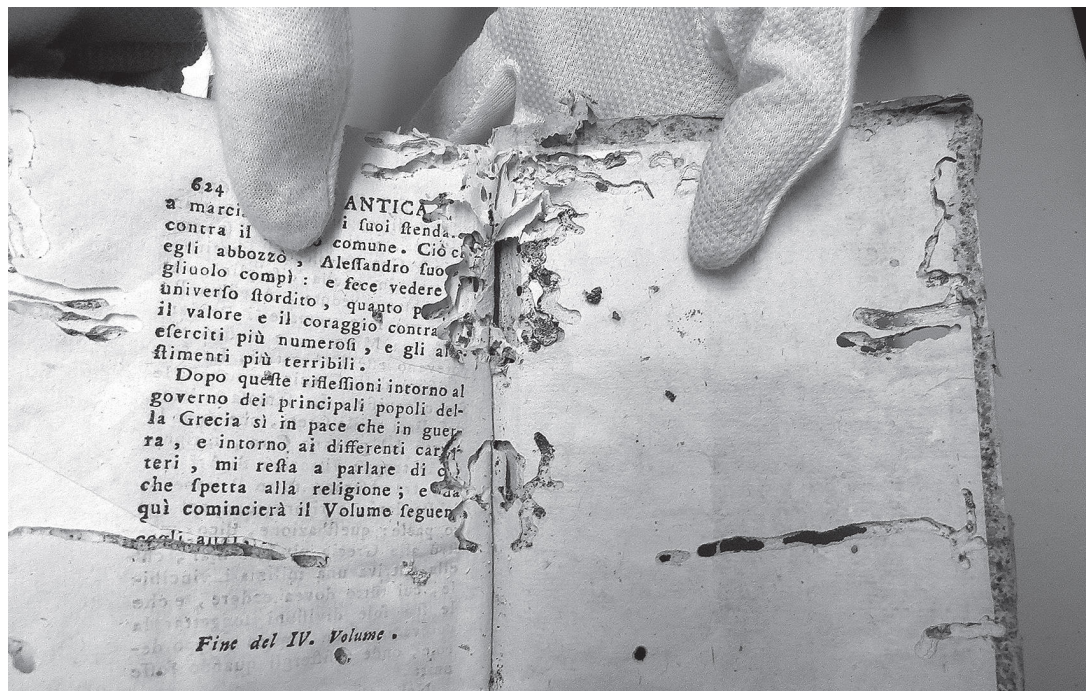 624 ANTICA
a marcia i ſuoi ſtenda-
contra il comune. Ciò c
egli abbozzò, Aleſſandro ſuo
gliuolo compì: e fece vedere
univerſo ſtordito, quanto p
il valore e il coraggio contra
eſerciti più numeroſi, e gli al
ſtimenti più terribili.
Dopo queſte rifleſſioni intorno al
governo dei principali popoli del-
la Grecia sì in pace che in guer-
ra, e intorno ai differenti carat
teri, mi reſta a parlare di
che ſpetta alla religione; e da
quì comincierà il Volume ſeguen
cogli auſ.
Fine del IV. Volume.